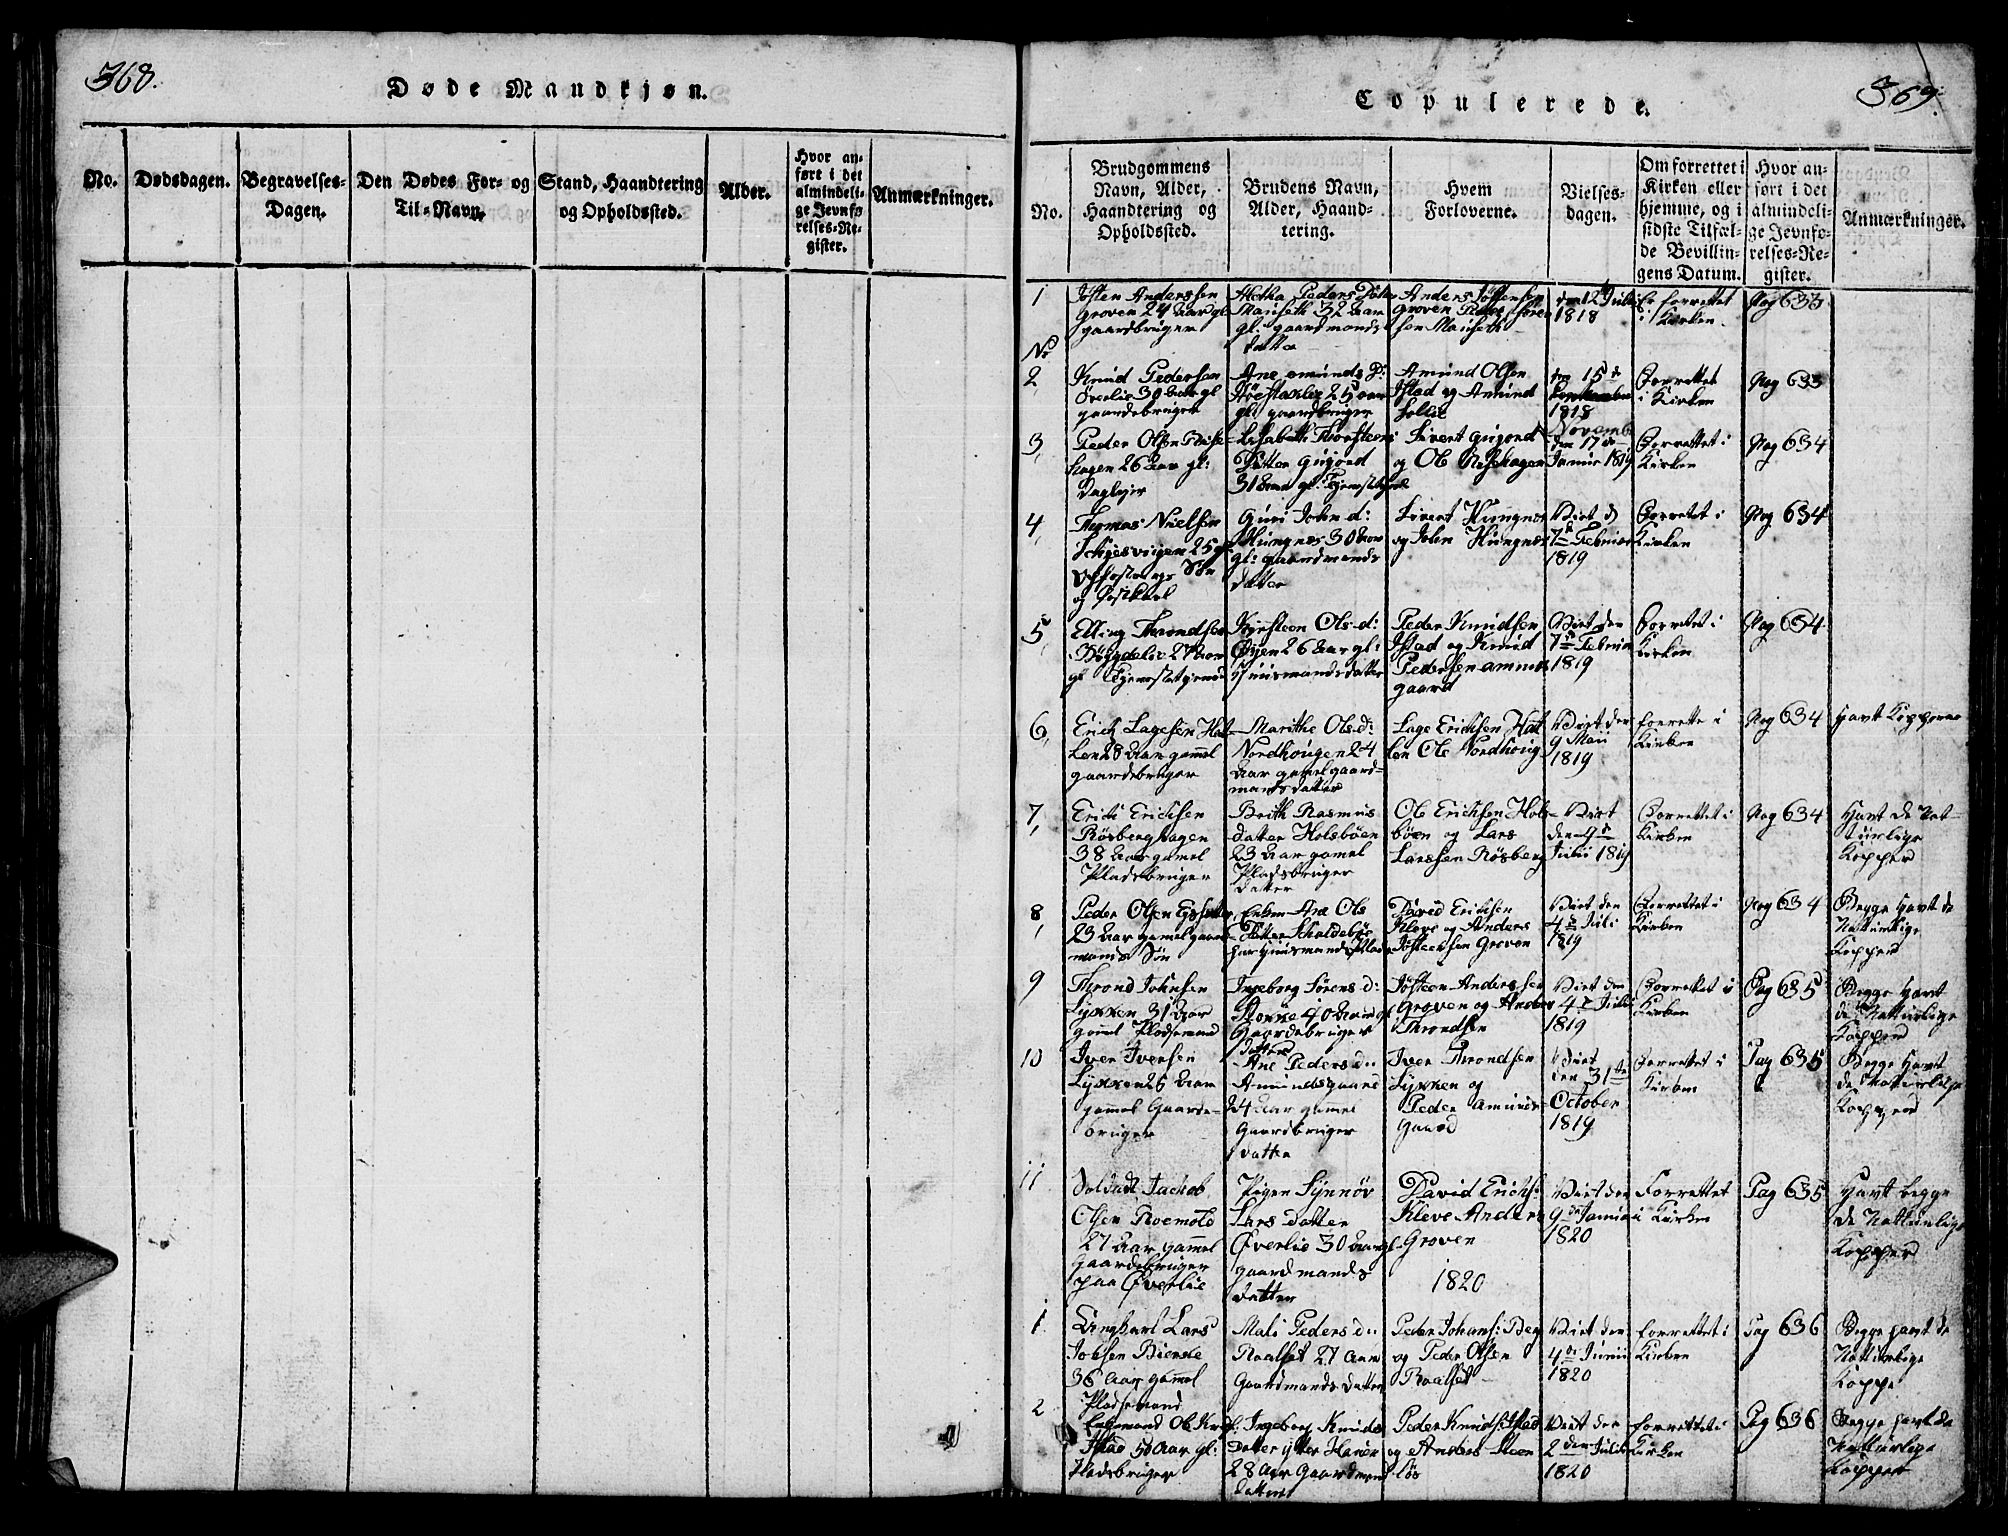 368.
Døde Mandkjøn.
No.
Dødsdagen.
Begravelses-
Dagen.
Den Dødes For- og
Til-Navn.
Stand, Haandtering
og Opholdssted.
Alder.
Hvor an-
ført i det
almindeli-
ge Jevnfø-
relses-Re-
gister.
Anmærkninger.
369.
Copulerede.
No.
Brudgommens
Navn, Alder,
Haandtering og
Opholdssted.
Brudens Navn,
Alder, Haand-
tering.
Hvem
Forloverne.
Vielses-
dagen.
Om forrettet i
Kirken eller
hjemme, og i
sidste Tilfæl-
de Bevillin-
gens Datum.
Hvor an-
ført i det
almindeli-
ge Jevnfø-
relses-Re-
gister.
Anmærkninger.
1
Josten Anderssen
Groven 24 Aar gl
gaardbruger
Peders Datter
32 Aar
gl. gaardmands
datter
Anders Jostensen
Groven
den 12 Julii
1818
Er forrettet
i Kirken
Pag 633
No
2
Knud Pedersen
Överlie 30 Aar gl
gaardebruger
Ane Amunds D:
25 aar
gl. gaardbruger
Amund Olsen
Istad og Amund
Sollie
den 15de
1818
Novemb
Forrettet
i Kirken
Pag 633
3,
Peder Olsen
hagen 26 Aar gl:
Daglejer
Lisabeth Torsteens
Datter Gujord
31 Aar gl. Tjenestepige
Sivert Gujord
og Ole
den 17de
Januar 1819
Forrettet i
Kirken
Pag 634
4,
Thomas Nielsen
25 gl
Søn
og Postkarl
Guri John d:
Hungnes 30 Aar
gl: gaardmands
datter
Sivert Hungnes
og John Hungnes
Viet d
7de Februar
1819
Forrettet i
Kirken
Pag 634
5,
Elling Throndsen
Böigdelie 27 Aar
gl Tjenestetjener
Kirsteen Ols d:
Öyen 26 Aar gl:
Huusmandsdatter
Peder Knudsen
Istad og Knud
Pedersen Amunds
gaard
Viet den
7de Februar
1819
Forrettet i
Kirken
Pag 634
6,
Erich Lagesen Hat-
len 28 Aar gammel
gaardebruger
Marithe Ols d:
Nordhougen 24
Aar gamel gaard-
mandsdatter
Lage Erichsen Hat
len Ole Nordhoug
Viet den
9 Maii
1819
forrette i
Kirken
Pag 634
Havt Kopperne
7,
Erich Erichsen
Rösberghagen
38 Aar gamel
Pladsbruger
Brith Rasmus
datter Holsböen
23 Aar gamel
Pladsbruger
Datter
Ole Erichsen Hols-
böen og Lars
Larssen Rösberg
Viet
den 4de
Julii 1819
Forrettet i
Kirken
Pag 634
Havt de Nat-
turlige
Kopper
8,
Peder Olsen
23 Aar gamel gaard
mands Søn
Enken Ane Ols
Datter Skaldeböe
har Huusmands Plads
David Erichsen
Kleve og Anders
Josteensen Groven
Viet den
4de Juli
1819
Forrettet i
Kirken
Pag 634
Begge Havt de
Naturlige
Kopper
9
Thrond Johnsen
Lykken 31 Aar
gaml Pladsemand
Ingeborg Sörens d:
Stokke 40 Aar gl
Gaardebruger
Datter
Josteen Anderssen
Groven og Anders
Throndsen
Viet den
4de Julii
1819
Forrettet i
Kirken
Pag 635
Begge Havt
de Natturlige
Kopper
10
Iver Iversen
Lykken 25 Aar
gammel Gaarde-
bruger
Ane Peders d:
Amundsgaard
24 Aar gammel
Gaardbruger
datter
Iver Throndsen
Lykken og
Peder Amunds-
gaard
Viet
den 31te
October
1819
Forrettet i
Kirken
Pag 635
Begge Havt
de Natturlige
Kopper
11
Soldadt Jachob
Olsen Roemold
27 Aar gammel
Gaardebruger
paa Överlie
Pigen Synnöv
Lars datter
Överlie 30 Aar gl
gaardmands
datter
David Erichs:
Kleve Anders
Groven
Viet den
9de Januar
1820
Forrettet
i Kirken
Pag 635
Havt begge
de Natturlige
Kopper
1820
1
Ungkarl Lars
Johsen Biersse
36 Aar gammel
Pladsemand
Mali Peders d:
Roalset 27 Aar
Gaardmands datter
Peder Johans: Berg
og Peder Olsen
Roalset
Viet den
4de Junii
1820
forrettet i
Kirken
Pag 636
Begge havt de
Natturlige
Koppe
2
Enkemand Ole Knuds:
Istad 50 Aar gl:
Pladsbruger
Ingeborg Knuds
Datter ytter Harör
28 Aar Gaardmands
datter
Peder Knuds: Istad
og Anders Steen
lös
Viet den
2den Julii
1820
forrettet i
Kirken
Pag 636
Begge havt de
Natturlige
Kopper